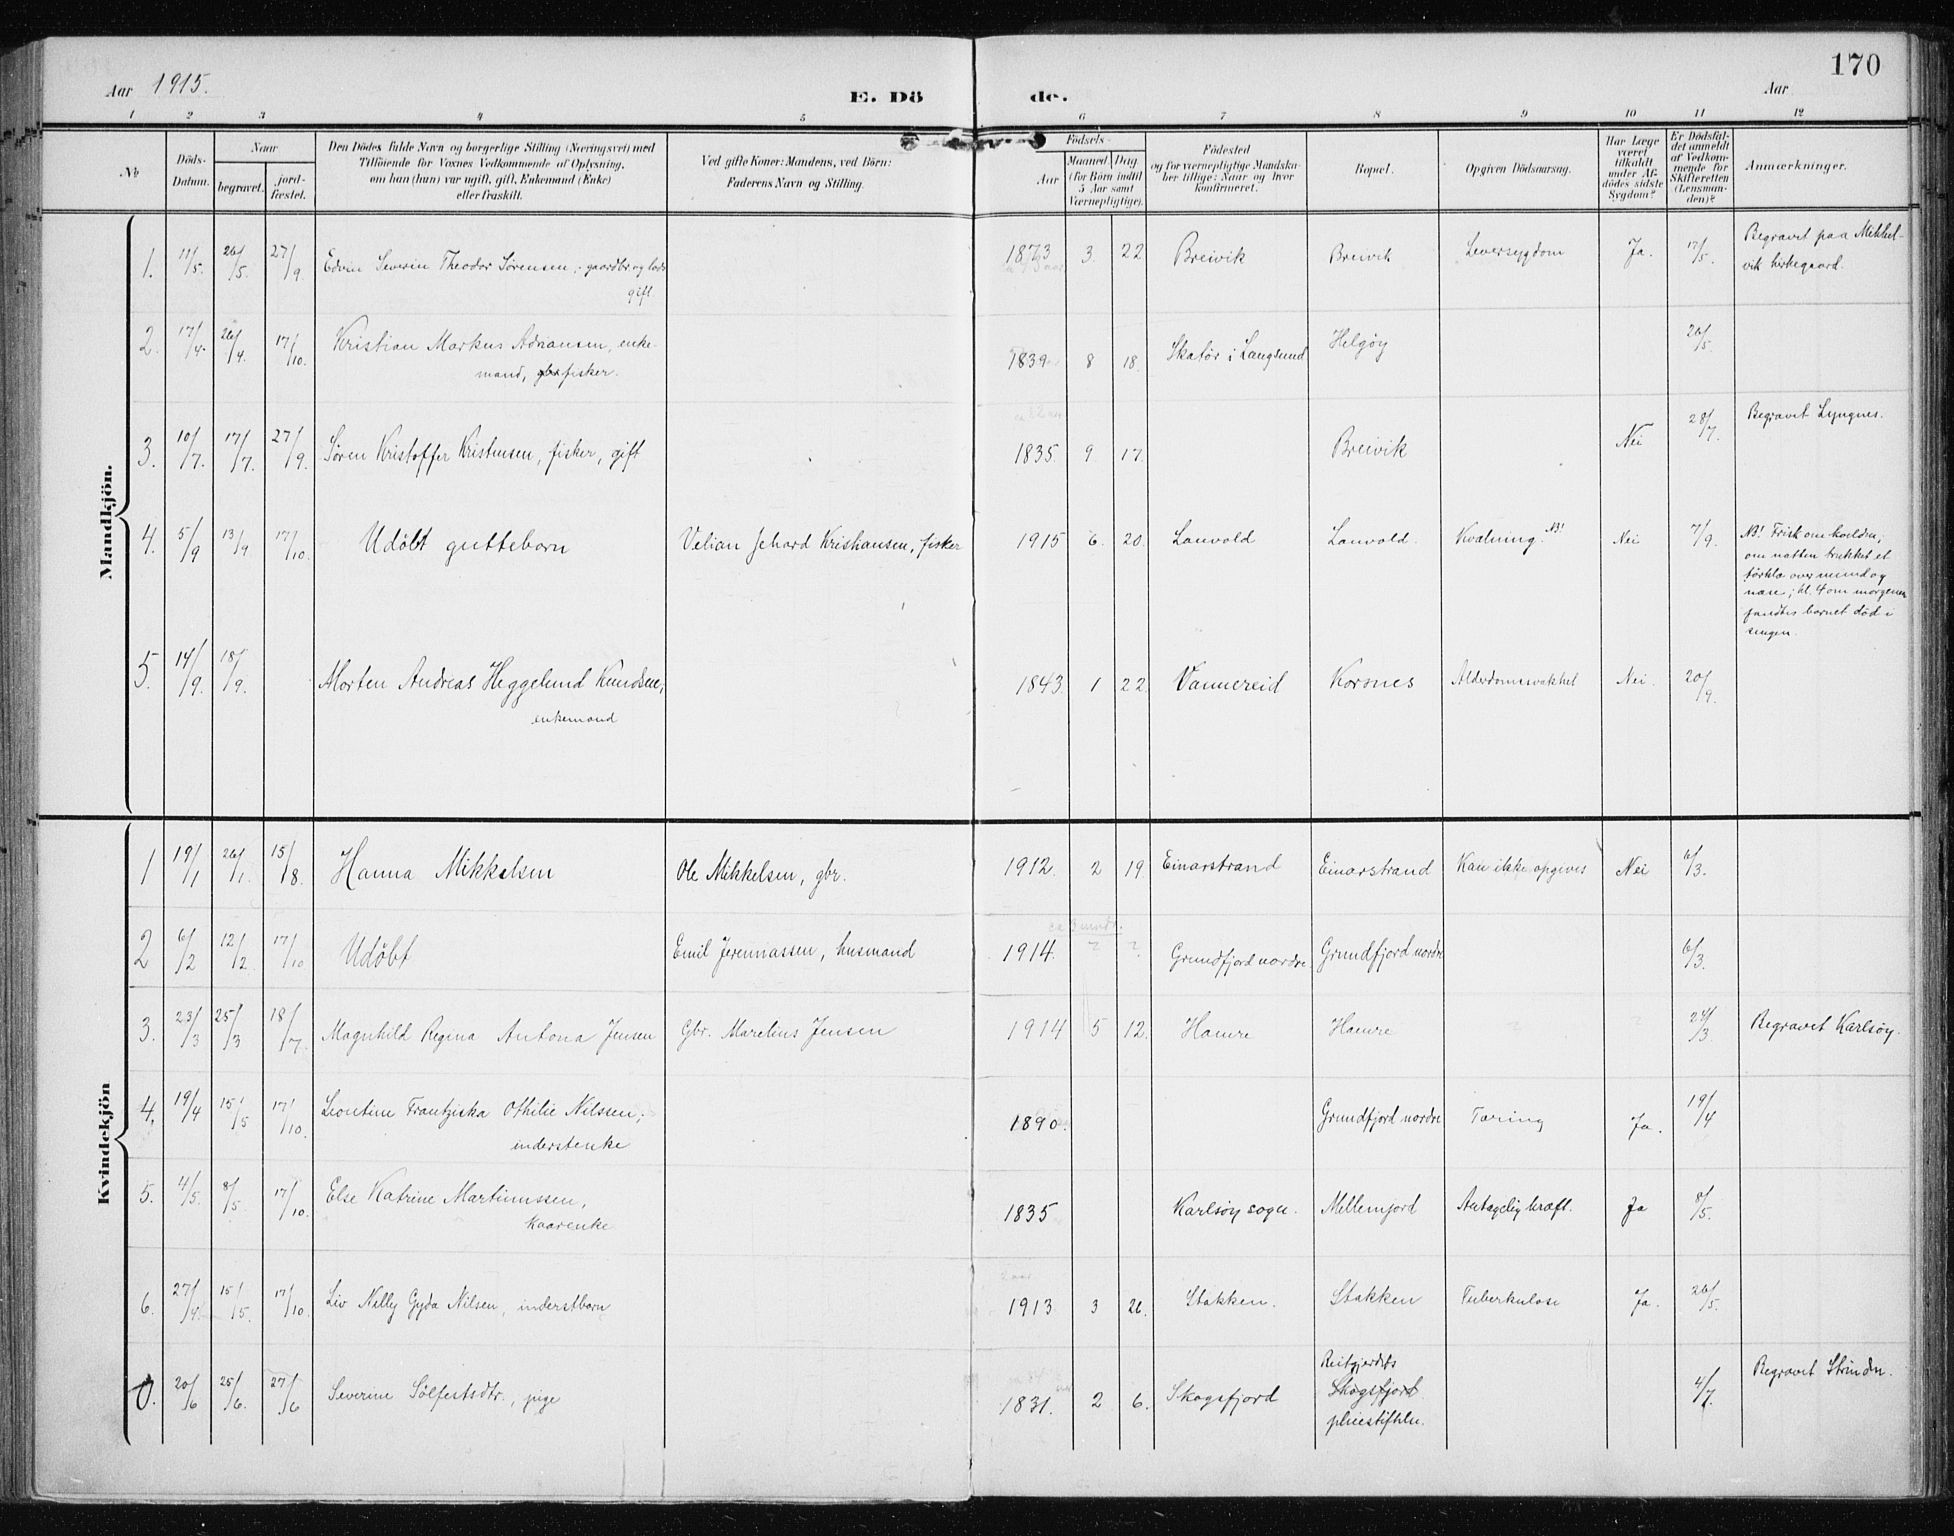 170
Aar 1915.
E. Dö
de.
Aar
1 2 3 4 5 6 7 8 9 10 11 12
No
Döds-Datum.
Naar
begravet.
jord-fæstet.
Den Dödes fulde Navn og borgerlige Stilling (Næringsvei) med
Tilföiende for Voxnes Vedkommende af Oplysning,
om han (hun) var ugift, gift, Enkemand (Enke)
eller fraskilt.
Ved gifte Koner: Mandens, ved Börn:
Faderens Navn og Stilling.
Födsels-
Aar
Maaned. Dag
(for Börn indtil
5 Aar samt
Værnepligtige).
Födested
og for værnepligtige Mandska-
ber tillige: Naar og hvor
konfirmeret.
Bopæl.
Opgiven Dödsaarsag.
Har Læge
været
tilkaldt
under Af-
dödes sidste
Sygdom?
Er Dödsfal-
det anmeldt
af Vedkom-
mende for
Skifteretten
(Lensman-
den)?
Anmærkninger.
Mandkjön.
1. 11/5. 26/5. 27/9. Edvin Severin Theodor Sörensen, gaardbr og lods 1873 3. 22 Breivik Breivik Leversygdom Ja. 17/5. Begravet paa Mikkel-
gift. vik kirkegaard.
2. 17/4. 26/4. 17/10. Kristian Markus Adriansen, enke- 1839 8 18. Skatör i Langsund Helgöy 26/5.
mand, fisker.
3. 10/7. 17/7. 27/9. Sören Kristoffer Kristensen, fisker, gift 1835. 9. 17. Breivik Nei 28/7. Begravet Lyngnes.
4. 5/9 13/9 17/10. Udöbt guttebarn Velian Jehard Kristiansen, fisker 1915 6. 20. Lanvold Lanvold. Kvælning. NB! Nei 7/9. NB! Frisk om kvelden;
om natten trukket et
törklæ over mund og
næse; kl. 4 om morgenen
fandtes barnet död i
sengen.
5. 14/9. 18/9. Morten Andreas Heggelund Knudsen, 1843. 1 22. Vannereid Korsnes Alderdomssvakhet Nei. 20/9.
enkemand
Kvindekjön
1 19/1 26/1. 15/8. Hanna Mikkelsen Ole Mikkelsen, gbr. 1912. 2 19. Einarstrand Einarstrand Kan ikke opgives Nei 6/3.
ca 3 mndr.
2 6/2 12/2. 17/10 Udöbt Emil Jeremiassen, husmand 1914. ? ? Grundfjord nordre Grundfjord nordre 6/3.
3. 23/3 25/3 18/7. Magnhild Regina Antona Jensen Gbr. Marelius Jensen 1914 5 12. Hamre Hamre 24/3 Begravet Karlsöy.
4. 19/4 15/5 17/10. Leontine Frantziska Othilie Nilssen; 1890. Grundfjord nordre Tæring Ja. 19/4
inderstenke
5. 4/5. 8/5 17/10. Else Katrine Martinussen, 1835 Karlsöy sogn. Mellemjord Antagelig kræft. Ja 8/5.
kaarenke
2 aar
6. 27/4. 15/5. 17/10. Liv Nelly Gyda Nilsen, inderstbarn 1913 3 26. Stakken. Stakken Tuberkulose Ja. 26/5.
Reitgjerdets
0. 20/6 25/6. 27/6 Severine Sölfestsdtr., pige 1831. 2 6. Skogsfjord Skogsfjord 4/7. Begravet Strinda.
pleiestiftelse.